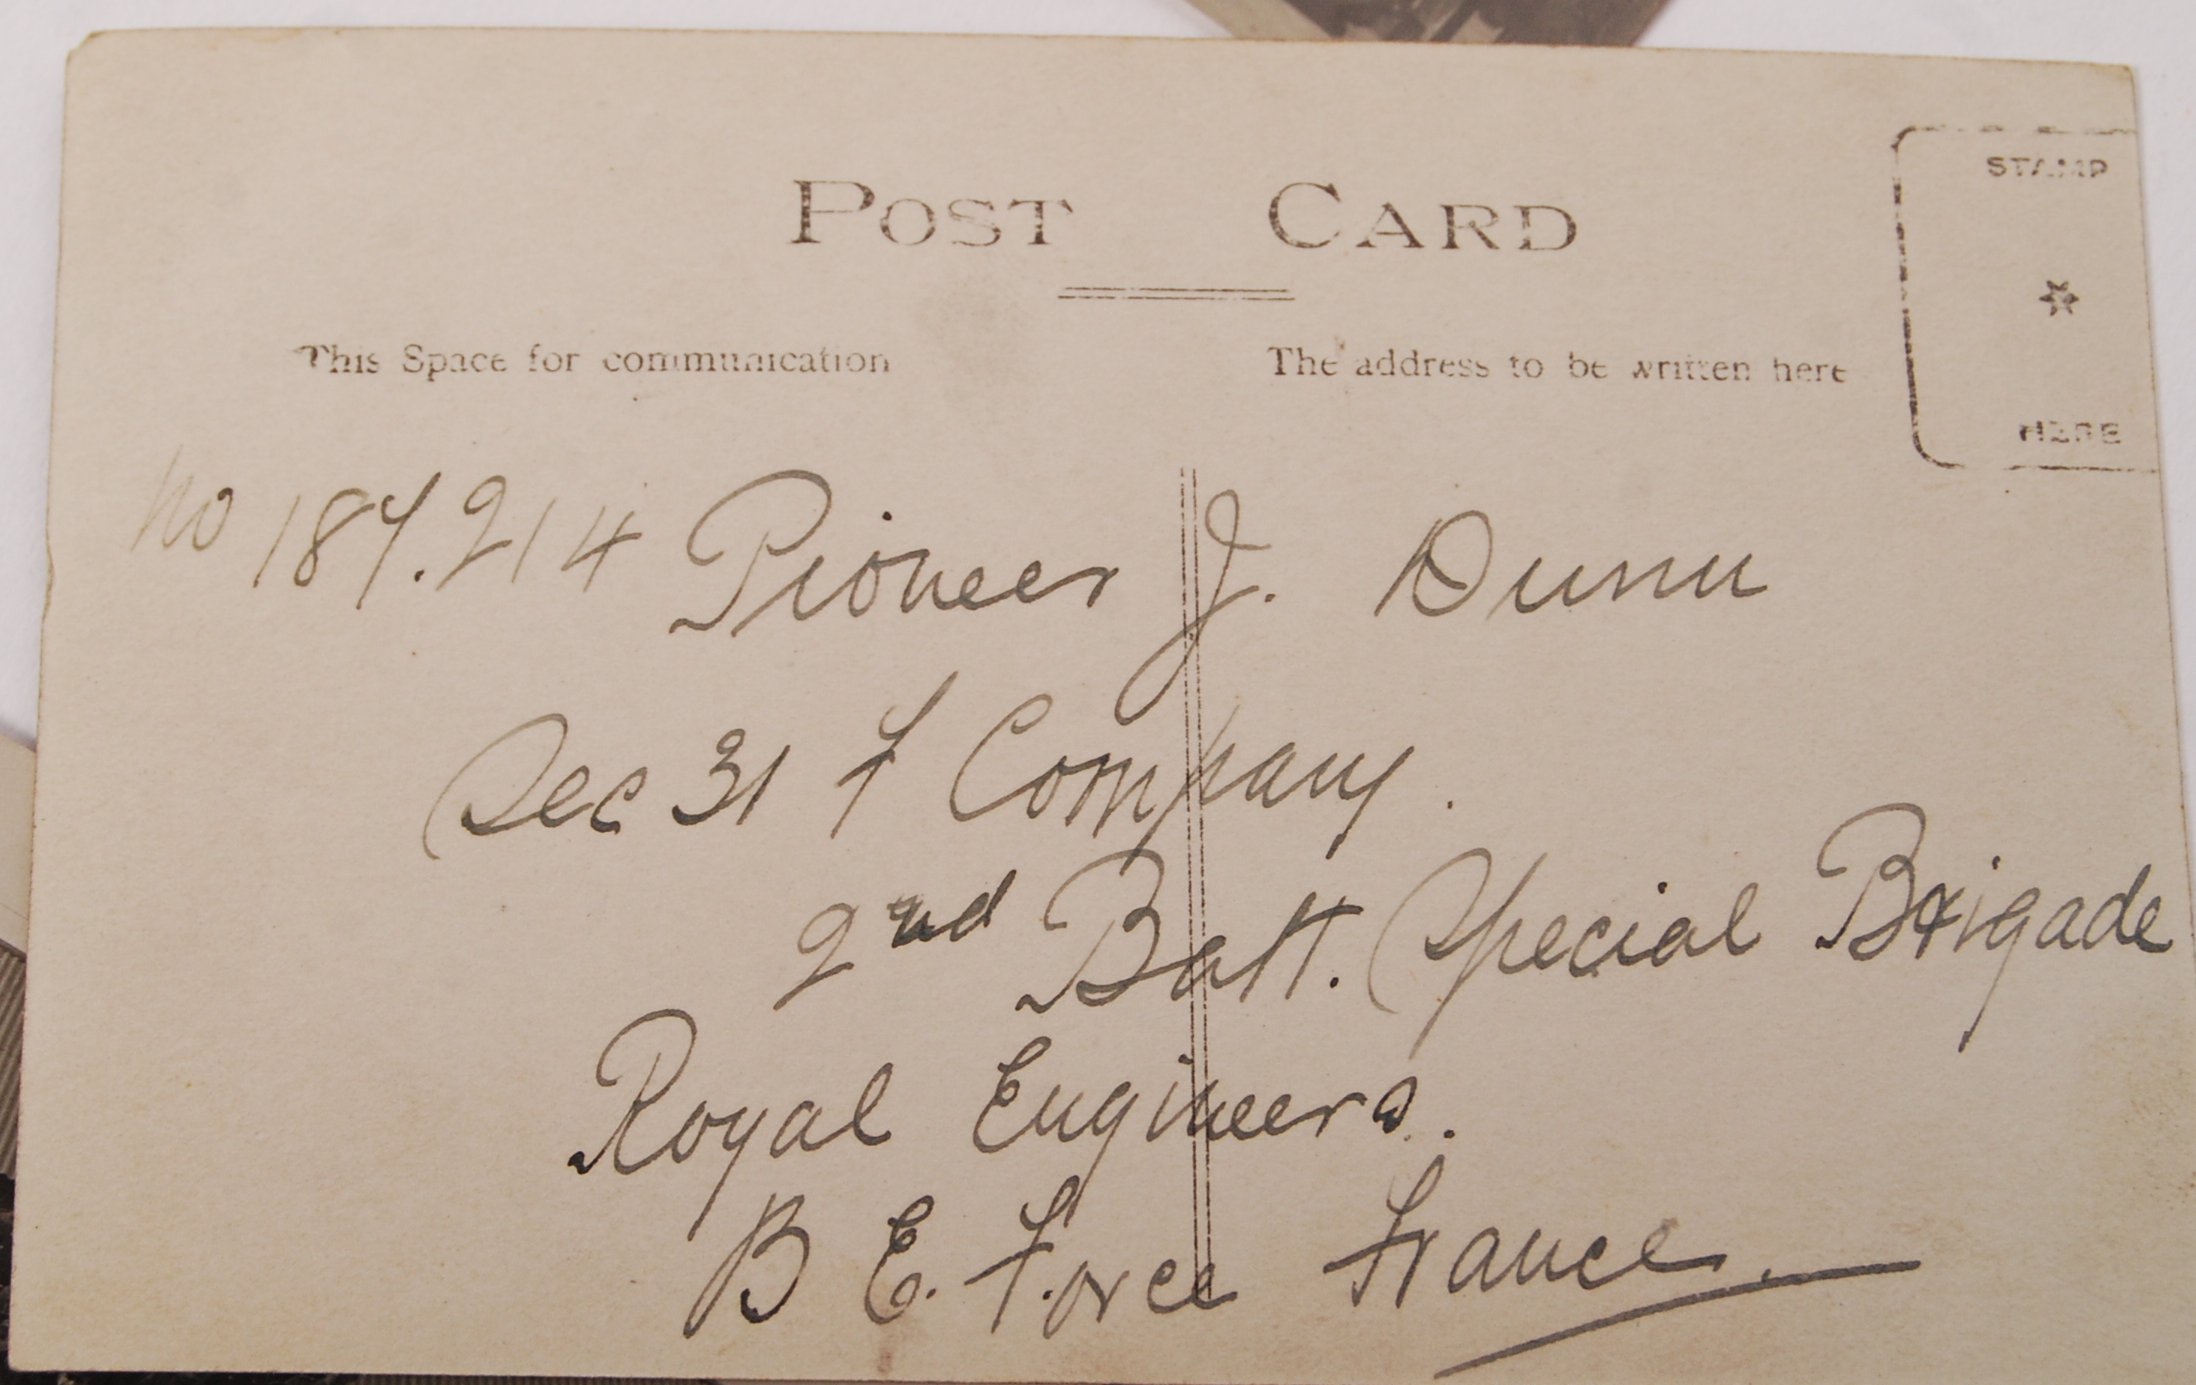 POST CARD
STAMP
HERE
This Space for communication
The address to be written here
No 187.214 Pioneer J. Dunn
Sec 31 F Company.
2nd Batt. Special Brigade
Royal Engineers.
B E. Force France.